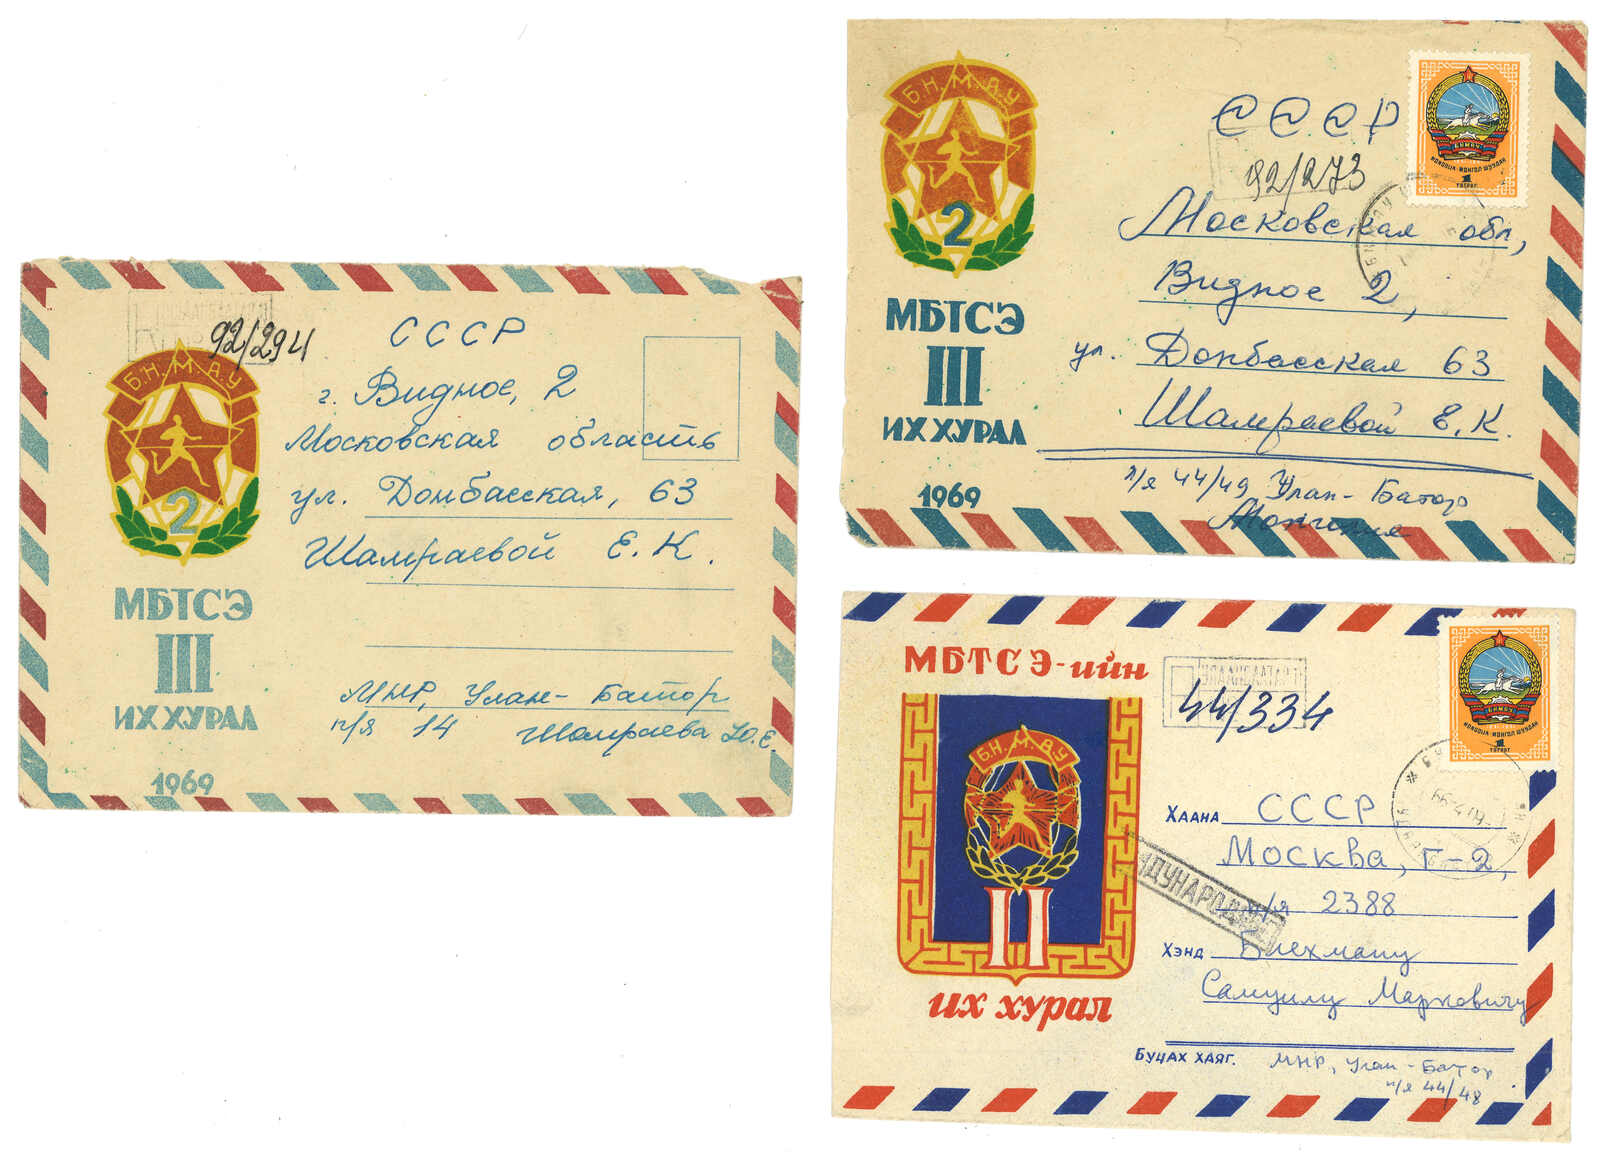 92/294
СССР
г. Видное, 2
Московская область
ул. Донбасская, 63
Шамраевой Е. К.
Б.Н.М.А.У
2
МБТСЭ
III
ИХ ХУРАЛ
1969
МНР, Улан-Батор
п/я 14 Шамраева Ю.Е.
Б.Н.М.А.У
2
МБТСЭ
III
ИХ ХУРАЛ
1969
СССР
92/273
Московская обл,
Видное 2,
ул. Донбасская 63
Шамраевой Е. К.
п/я 44/49 Улан-Батор
Монголия
БНМАУ
МОНГОЛ ШУУДАН
1
ТӨГРӨГ
МБТСЭ-ийн
Б.Н.М.А.У
II
их хурал
УЛААНБААТАР
44/334
БНМАУ
МОНГОЛ ШУУДАН
1
ТӨГРӨГ
Хаана СССР
Москва, Г-2,
п/я 2388
Хэнд Блехману
Самуилу Марковичу
Буцах хаяг. МНР, Улан-Батор
п/я 44/48